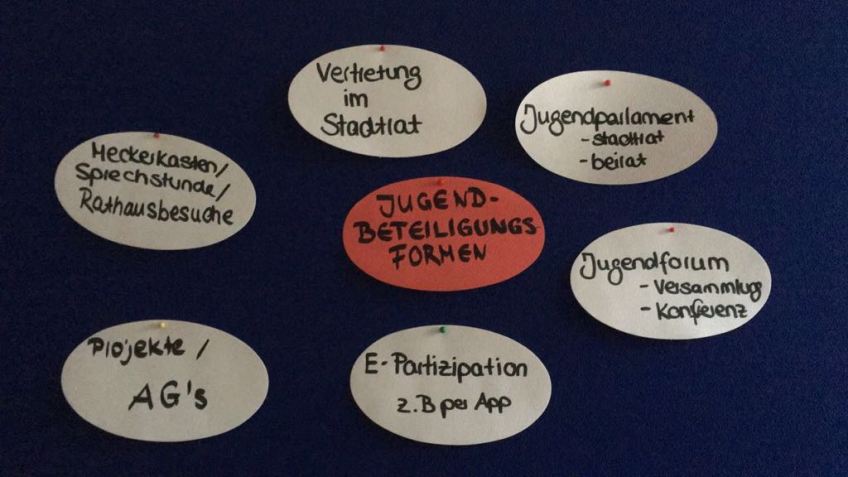 Vertretung
im
Stadtrat
Jugendparlament
- stadtrat
- beirat
Meckerkasten/
Sprechstunde/
Rathausbesuche
JUGEND-
BETEILIGUNGS
FORMEN
Jugendforum
- Versammlugs
- Konferenz
Projekte /
AG's
E-Partizipation
z.B per App